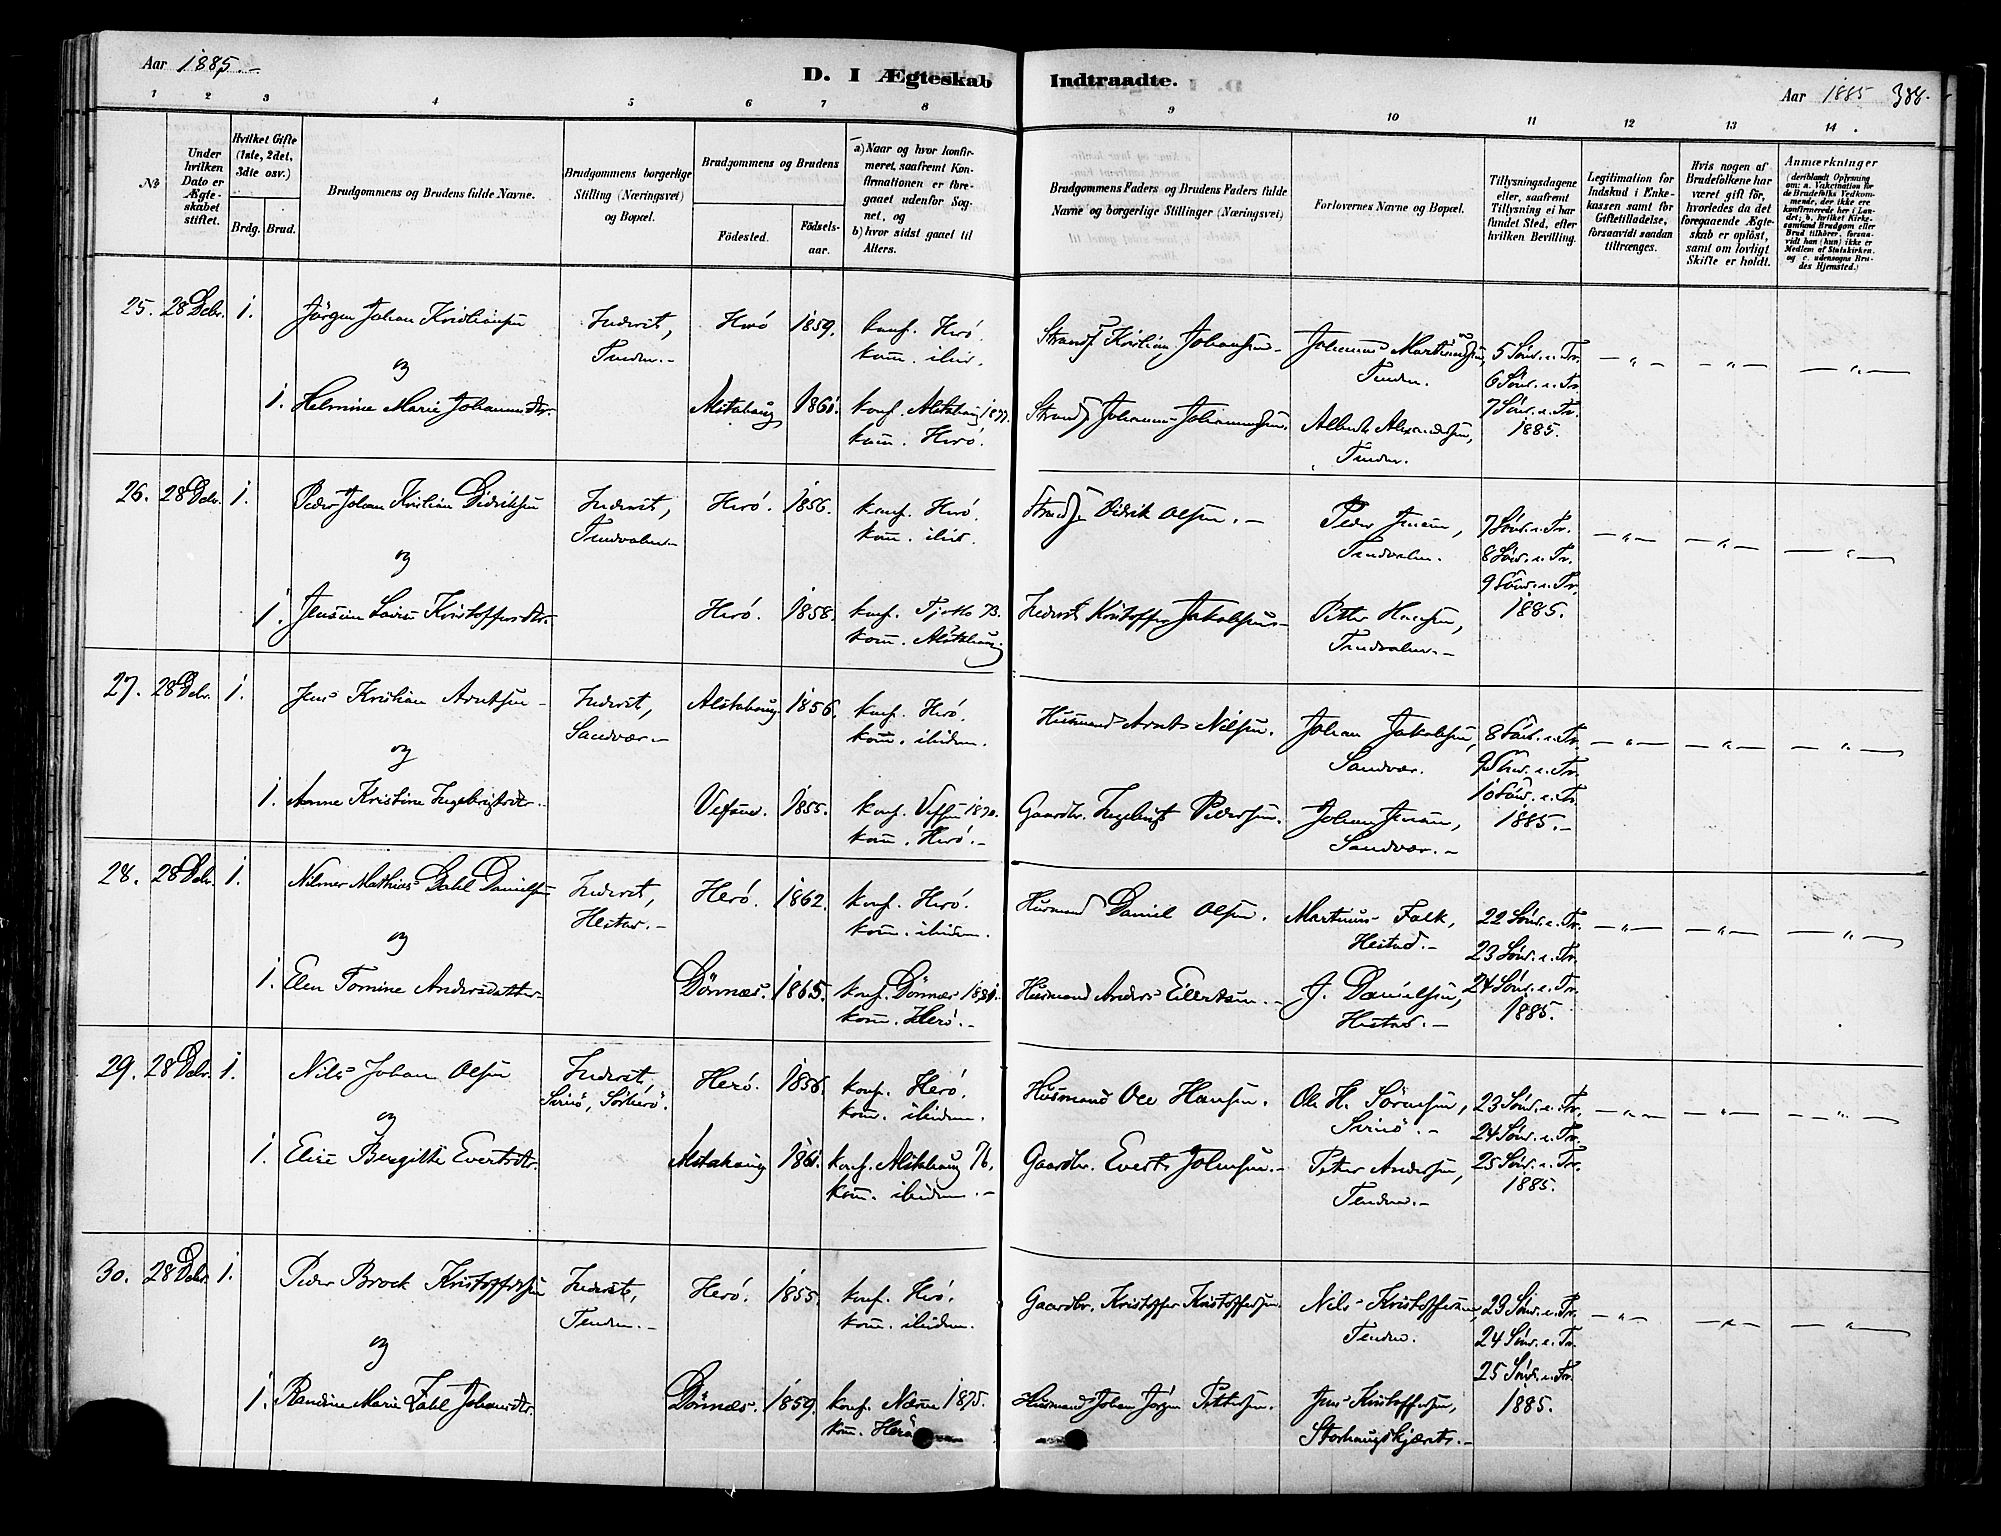 Aar 1885.-
D. I Ægteskab Indtraadte.
Aar 1885 388.
1 2 3 4 5 6 7 8 9 10 11 12 13 14
No
Under hvilken Dato er Ægteskabet stiftet.
Hvilket Gifte (1ste, 2det, 3die osv.)
Brdg. Brud.
Brudgommens og Brudens fulde Navne.
Brudgommens borgerlige Stilling (Næringsvei) og Bopæl.
Brudgommens og Brudens
Födested.
Födselsaar.
a) Naar og hvor konfirmeret, saafremt Konfirmationen er foregaaet udenfor Sognet, og
b) hvor sidst gaaet til Alters.
Brudgommens Faders og Brudens Faders fulde Navne og borgerlige Stillinger (Næringsvei)
Forlovernes Navne og Bopæl.
Tillysningsdagene eller, saafremt Tillysning ei har fundet Sted, efter hvilken Bevilling.
Legitimation for Indskud i Enkekassen samt for Giftetilladelse, forsaavidt saadan tiltrænges.
Hvis nogen af Brudefolkene har været gift för, hvorledes da det foregaaende Ægteskab er oplöst, samt om lovligt Skifte er holdt.
Anmærkninger
25. 28 Debr. 1. Jörgen Johan Kristiansen Inderst, Tenden.- Herö 1859. konf. Herö. kom. ibid. Strands. Kristian Johansen- Johannes Martinussen, Tenden. 5 Sönd. e. Tr. 6 Sönd. e. Tr. 7 Sönd. e. Tr. 1885.
og
1. Helmine Marie Johannesdtr. Alstahaug 1861. konf. Alstahaug 1877. kom. Herö. Strands. Johannes Johannessen. Albert Alexandersen, Tenden.
26. 28 Debr. 1. Peder Johan Kristian Didriksen Inderst, Tendvalen- Herö. 1856. konf. Herö. kom. ibid. Strands. Didrik Olsen.- Peder Jensen, Tendvalen. 7 Sönd. e. Tr. 8 Sönd. e. Tr. 9 Sönd. e. Tr. 1885.
og
1. Kristoffersdtr. Herö. 1858. konf. Tjötta 73. kom. Alstahaug Inderst Kristoffer Jakobsen- Petter Hansen, Tendvalen.-
27. 28 Debr. 1. Jens Kristian Arntsen- Inderst, Sandvær.- Alstahaug 1856. konf. Herö. kom. ibidem. Husmand Arnt Nilsen. Johan Jakobsen, Sandvær. 8 Sönd. e. Tr. 9 Sönd. e. Tr. 10 Sönd. e. Tr. 1885.-
og
1. Anne Kristine Ingebrigtsdtr.- Vefsen. 1855. konf. Vefsen 1870. kom. Herö.- Gaardbr. Ingebrigt Pedersen. Johan Jensen, Sandvær.-
28. 28 Debr. 1. Nilmer Mathias Dahl Danielsen Inderst, Hestad.- Herö. 1862. konf. Herö. kom. ibidem. Husmand Daniel Olsen. Martinus Falk, Hestad.- 22 Sönd. e. Tr. 23 Sönd. e. Tr. 24 Sönd. e. Tr. 1885.
og
1. Elen Tomine Andersdatter- Dönnæs. 1865. konf. Dönnæs 1881. kom. Herö.- Husmand Anders Eilertsen.- J. Danielsen, Hestad.-
29. 28 Debr. 1. Nils Johan Olsen Inderst, Sörherö. Herö. 1856. konf. Herö. kom. ibidem. Husmand Ole Hansen. Ole H. Sörensen, 23 Sönd. e. Tr. 24 Sönd. e. Tr. 25 Sönd. e. Tr. 1885.
og
1. Elise Bergitte Evertsdtr. Alstahaug 1861. konf. Alstahaug 76. kom. ibidem.- Gaardbr. Evert Johnsen.- Peter Andersen, Tenden.-
30. 28 Debr. 1. Peder Brock Kristoffersen Inderst, Tenden.- Herö. 1855. konf. Herö. kom. ibidem. Gaardbr. Kristoffer Kristoffersen. Nils Kristoffersen, Tenden. 23 Sönd. e. Tr. 24 Sönd. e. Tr. 25 Sönd. e. Tr. 1885.
og
1. Randine Marie Zahl Johansdtr. Dönnæs. 1859. konf. Næsne 1875. kom. Herö Husmand Johan Jörgen Pettersen. Jens Kristoffersen, Storhaugskjæret.-